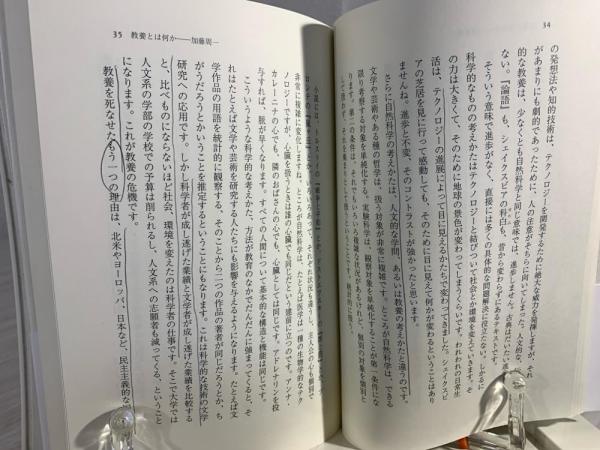 34
の発想法や知的技術は、テクノロジーを開発するために絶大な威力を発揮しますが、それ
があまりにも劇的であったために、人の注意がそちらに向いてしまった。人文的な、
的な教養は、少なくとも自然科学と同じ意味では、進歩しません。古典はだいたい
ない。『論語』も、シェイクスピアの科白も、昔から変わらずにあるテキストです。
そういう意味で進歩がなく、直接には多くの具体的な問題解決に役立たない。しかるに
科学的なものの考えかたはテクノロジーと結びついて社会とか環境を変えていきます。そ
の力は大きくて、そのために地球の景色が変わってしまうくらいです。われわれの日常生
活は、テクノロジーの進展によって目に見えるかたちで変わってきました。シェイクスピ
アの芝居を見に行って感動しても、そのために目に見えて何かが変わるということはあり
ませんね。進歩と不変、そのコントラストが強かったと思います。
さらに自然科学の考えかたは、人文的な学問、あるいは教養の考えかたと違うのです。
文学や芸術やある種の哲学は、扱う対象が非常に複雑です。ところが自然科学は、できる
限り考察する対象を単純化する。実験科学は、観察対象を単純化することが第一条件にな
35 教養とは何か——加藤周一
非常に複雑に変化しますね。ところが自然科学は、たとえば医学は一種の生物学的なテク
ノロジーですが、心臓を扱うときは誰の心臓でも同じだという建前に立つのです。アンナ・
カレーニナの心でも、隣のおばさんの心でも、心臓としては同じです。アドレナリンを投
与すれば、脈が早くなります。すべての人間について基本的な構造と機能は同じです。
こういうような科学的な考えかた、方法が教育のなかでだんだんに強まってくると、そ
れはたとえば文学や芸術を研究する人たちにも影響を与えるようになります。たとえば文
学作品の用語を統計的に観察する、そのことから二つの作品の著者が同じだろうとか、ち
がうだろうとかいうことを推定するということにもなります。これは科学的な技術の文学
研究への応用です。しかし科学者が成し遂げた業績と文学者が成し遂げた業績を比較する
と、比べものにならないほど社会、環境を変えたのは科学者の仕事です。そこで大学では
人文系の学部の学校での予算は削られるし、人文系への志願者も減ってくる、ということ
になります。これが教養の危機です。
教養を死なせたもう一つの理由は、北米やヨーロッパ、日本など、民主主義的な